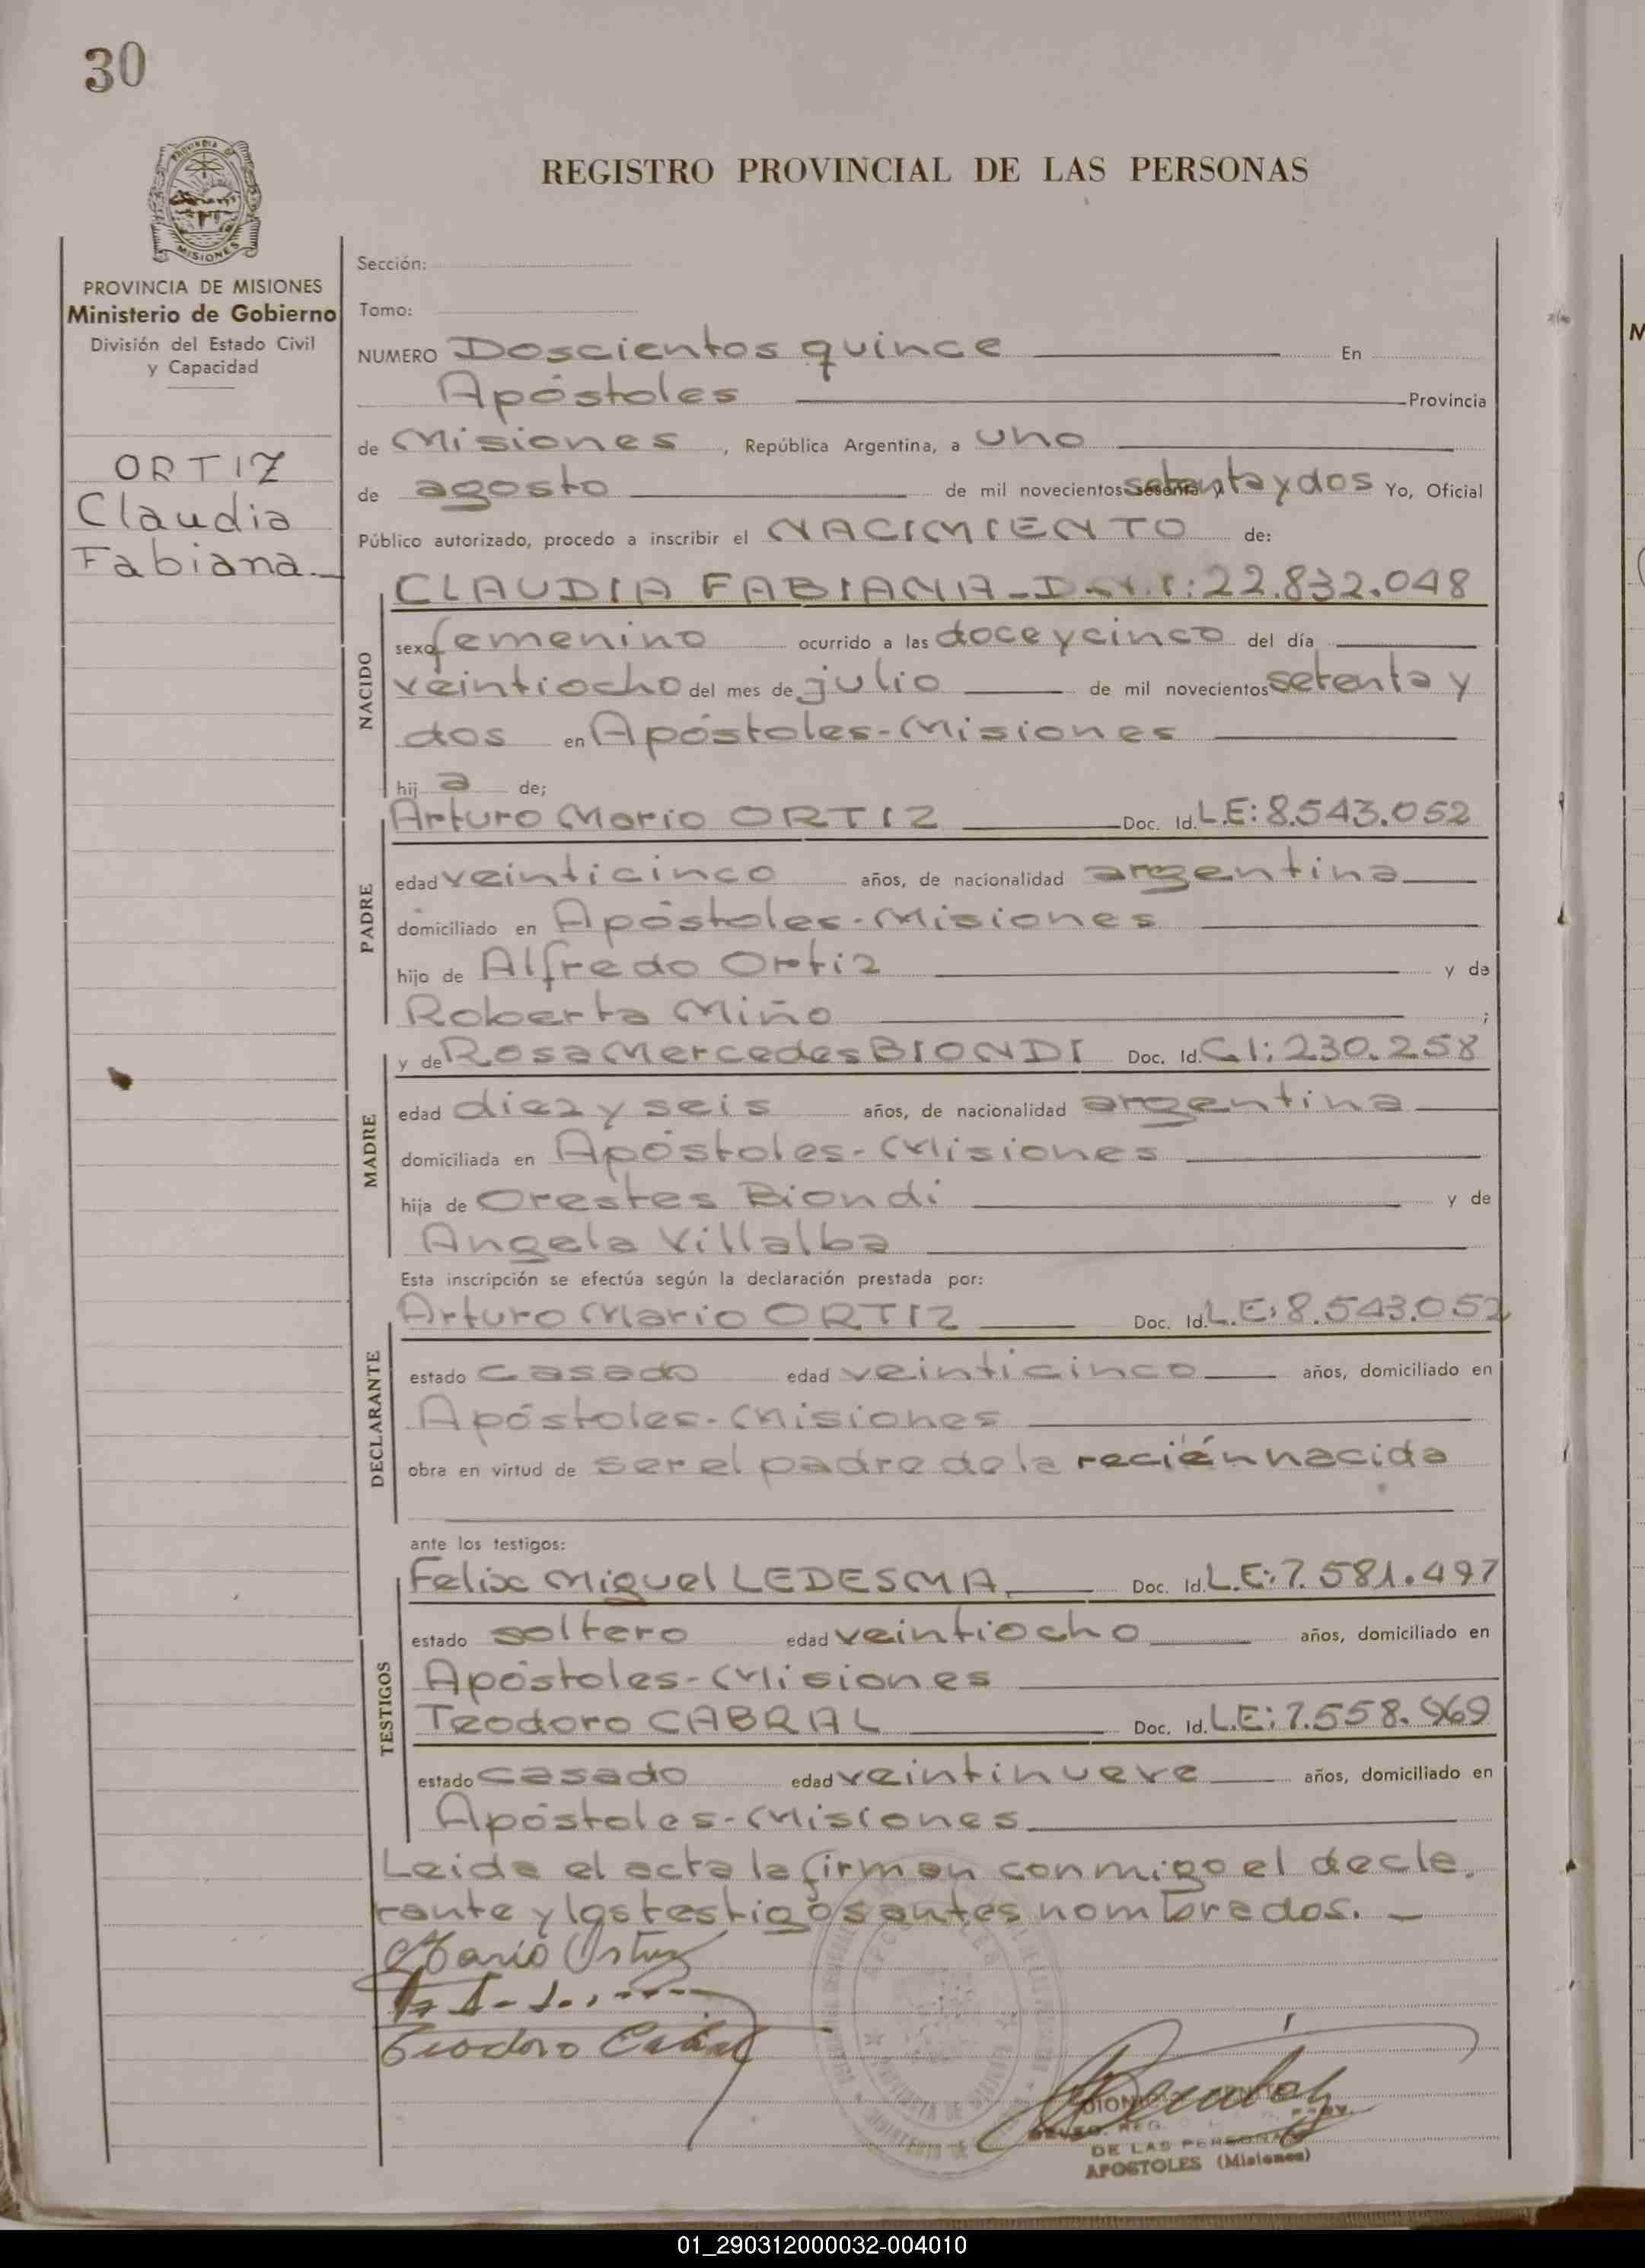 30
REGISTRO PROVINCIAL DE LAS PERSONAS
MISIONES
PROVINCIA DE MISIONES
Ministerio de Gobierno
División del Estado Civil
y Capacidad
ORTIZ
Claudia
Fabiana.
Sección:
Tomo:
NUMERO Doscientos quince En
Apóstoles Provincia
de Misiones, República Argentina, a uno
de agosto de mil novecientos setenta y dos Yo, Oficial
Público autorizado, procedo a inscribir el NACIMIENTO de:
NACIDO
CLAUDIA FABIANA - D.N.I: 22.832.048
sexo femenino ocurrido a las doce y cinco del día
veintiocho del mes de julio de mil novecientos setenta y
dos en Apóstoles-Misiones
hij a de;
PADRE
Arturo Mario ORTIZ Doc. Id. L.E: 8.543.052
edad veinticinco años, de nacionalidad argentina
domiciliado en Apóstoles-Misiones
hijo de Alfredo Ortiz y de
Roberta Miño ;
MADRE
y de Rosa Mercedes BIONDI Doc. Id. C.I: 230.258
edad diez y seis años, de nacionalidad argentina
domiciliada en Apóstoles-Misiones
hija de Orestes Biondi y de
Angela Villalba
Esta inscripción se efectúa según la declaración prestada por:
DECLARANTE
Arturo Mario ORTIZ Doc. Id. L.E: 8.543.052
estado casado edad veinticinco años, domiciliado en
Apóstoles-Misiones
obra en virtud de ser el padre de la recién nacida
ante los testigos:
TESTIGOS
Felix Miguel LEDESMA Doc. Id. L.E: 7.581.497
estado soltero edad veintiocho años, domiciliado en
Apóstoles-Misiones
Teodoro CABRAL Doc. Id. L.E: 7.558.969
estado casado edad veintinueve años, domiciliado en
Apóstoles-Misiones
Leida el acta la firman conmigo el decla.
rante y los testigos antes nombrados. -
Mario Ortiz
Teodoro Cabral
DE LAS PERSONAS
APOSTOLES (Misiones)
01_290312000032-004010